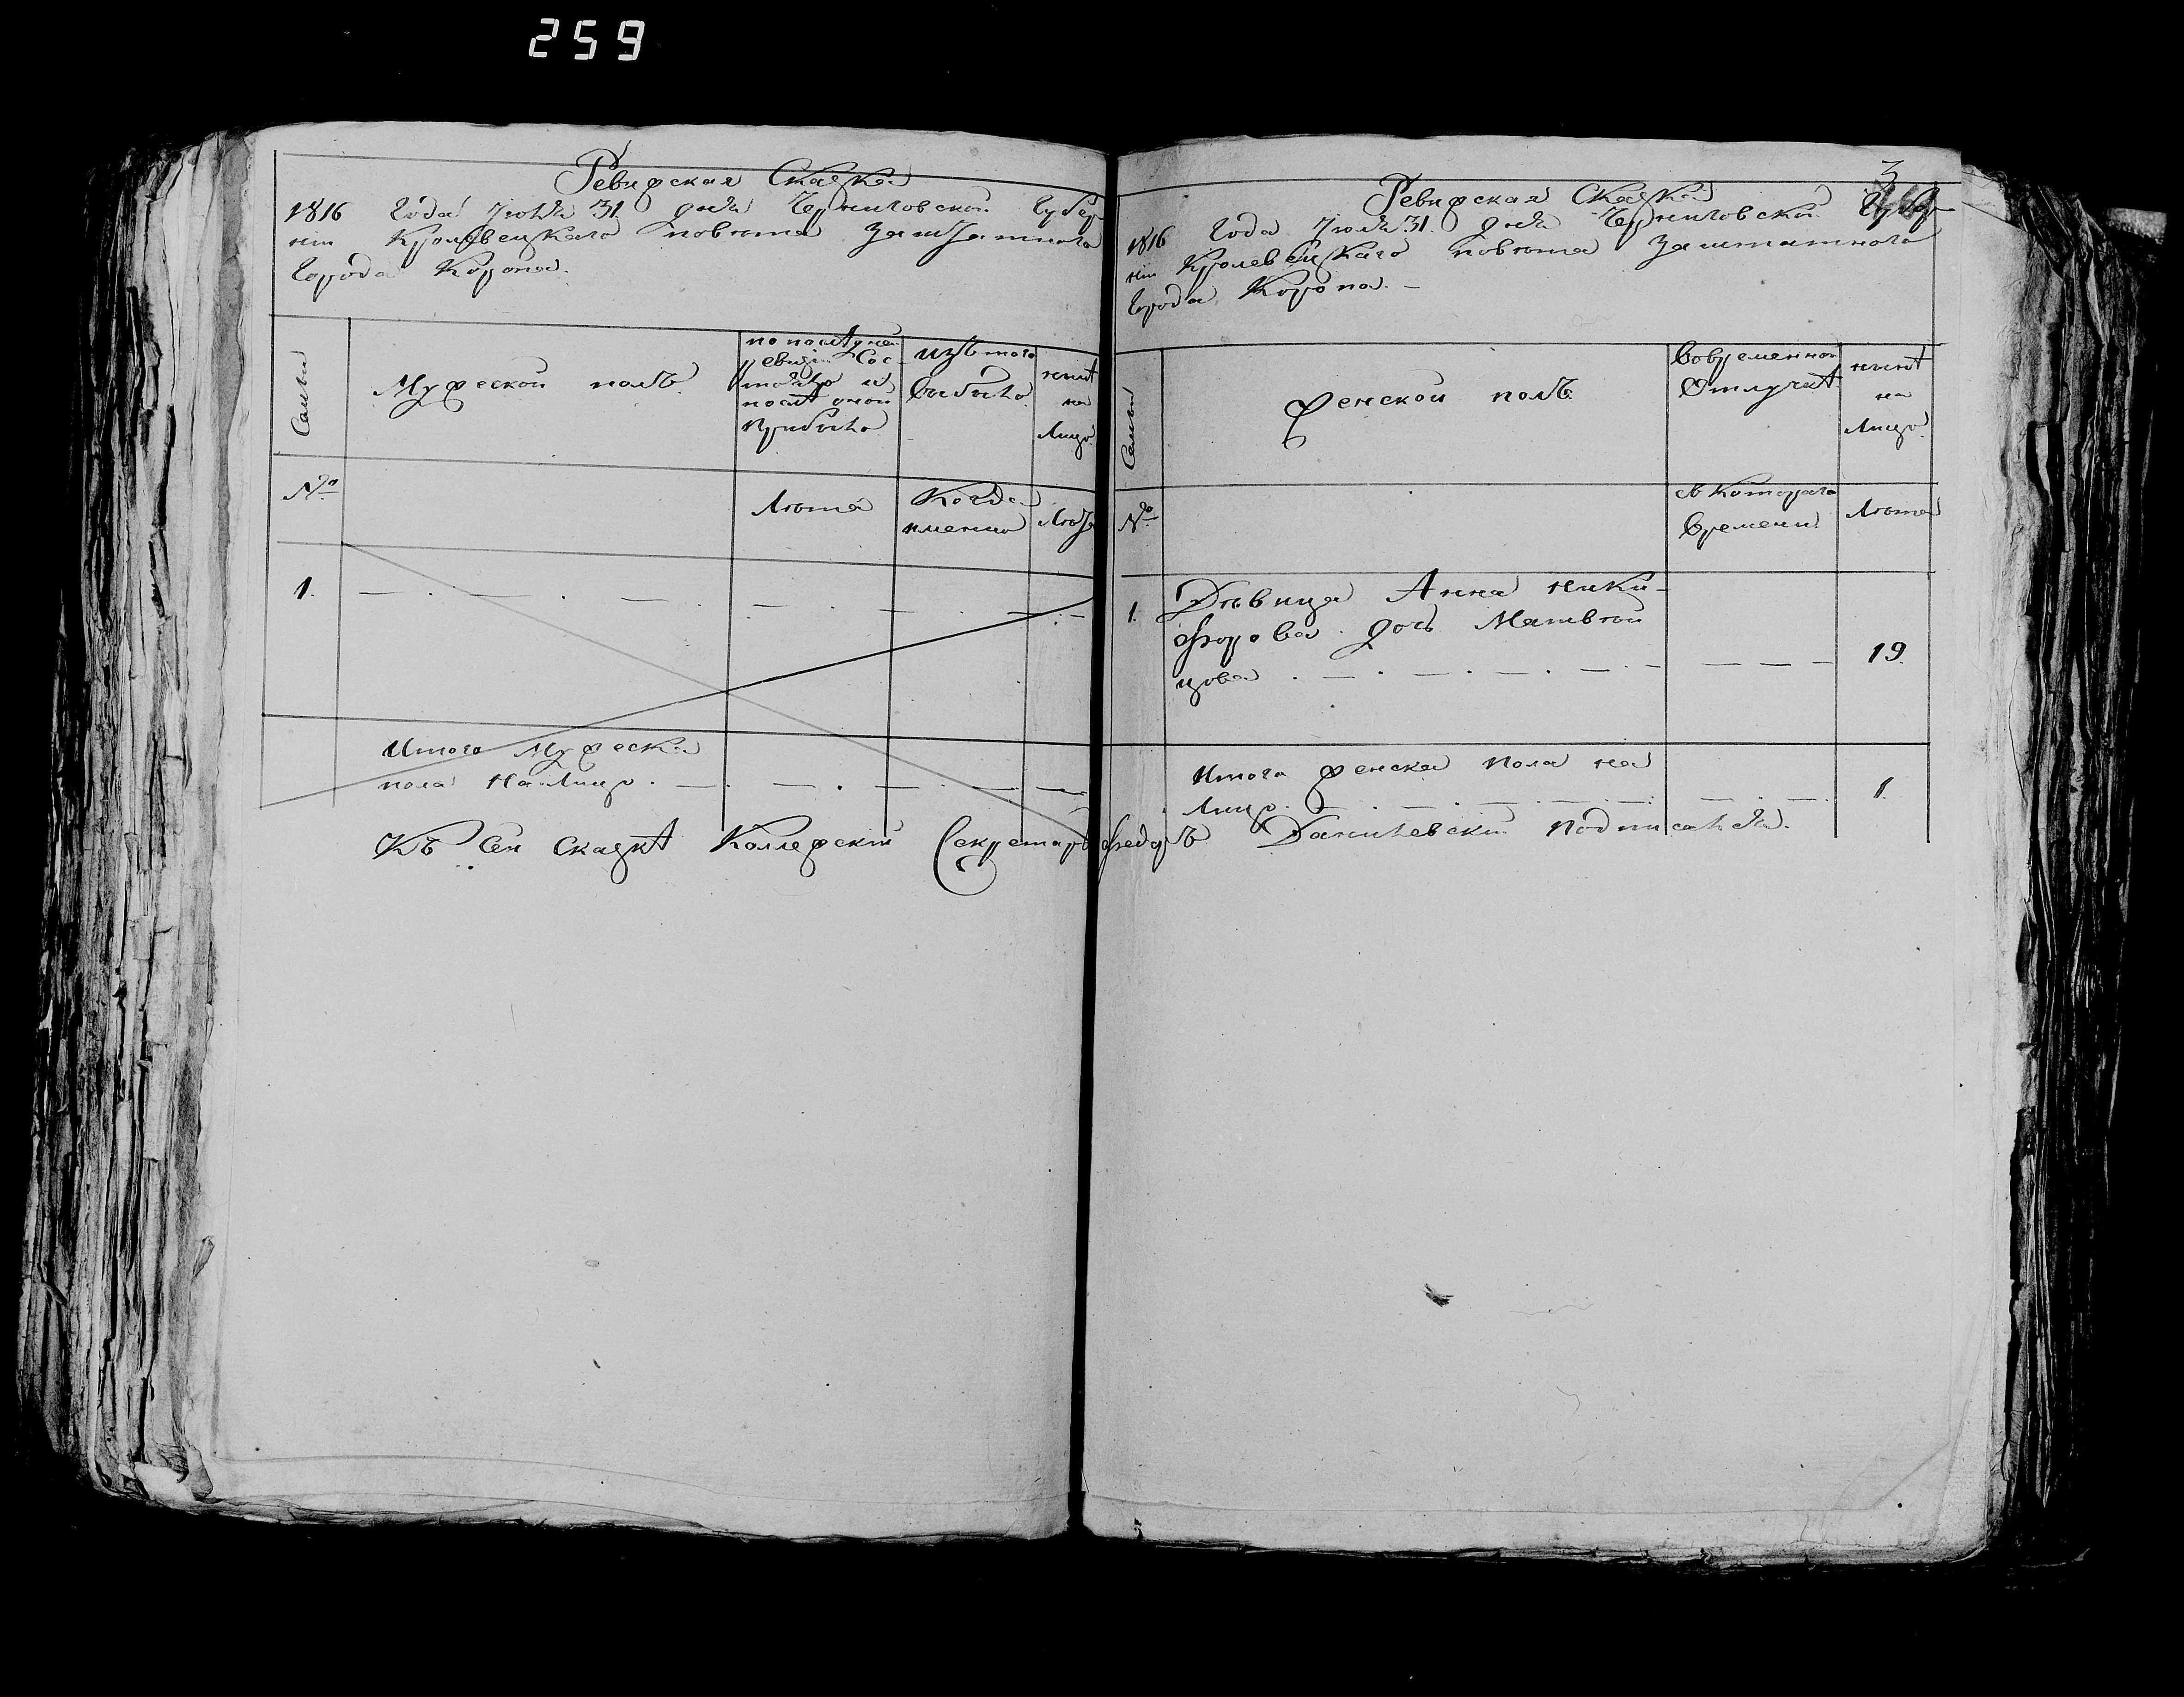 259
Ревизская Сказка
1816 Года Июля 31 дня Черниговской Губер
ніи Кролевецкаго повѣта заштатного
города Коропа.
Семьи
Мужеской полъ.
по послѣдней
ревизіи сос-
тояло и
послѣ оной
прибыло
изъ того
выбыло
нынѣ
на
Лицо.
№
Лѣта
Когда
именно
Лѣта
1.
Итого Мужеска
пола на Лицо.
3
Ревизская Сказка
1816 Года Июля 31 дня Черниговской Губер
ніи Кролевецкаго повѣта заштатного
города Коропа.
Семьи
Женской полъ.
Вовременной
Отлучкѣ
нынѣ
на
Лицо.
№
съ Котораго
времени
Лѣта
1. Дѣвица Анна Ники-
форова дочь Матвѣй
цова
19.
Итого женска пола на
Лицо. 1.
Къ сей сказкѣ Коллежскій Секретарь Федоръ Данилевскій подписался.